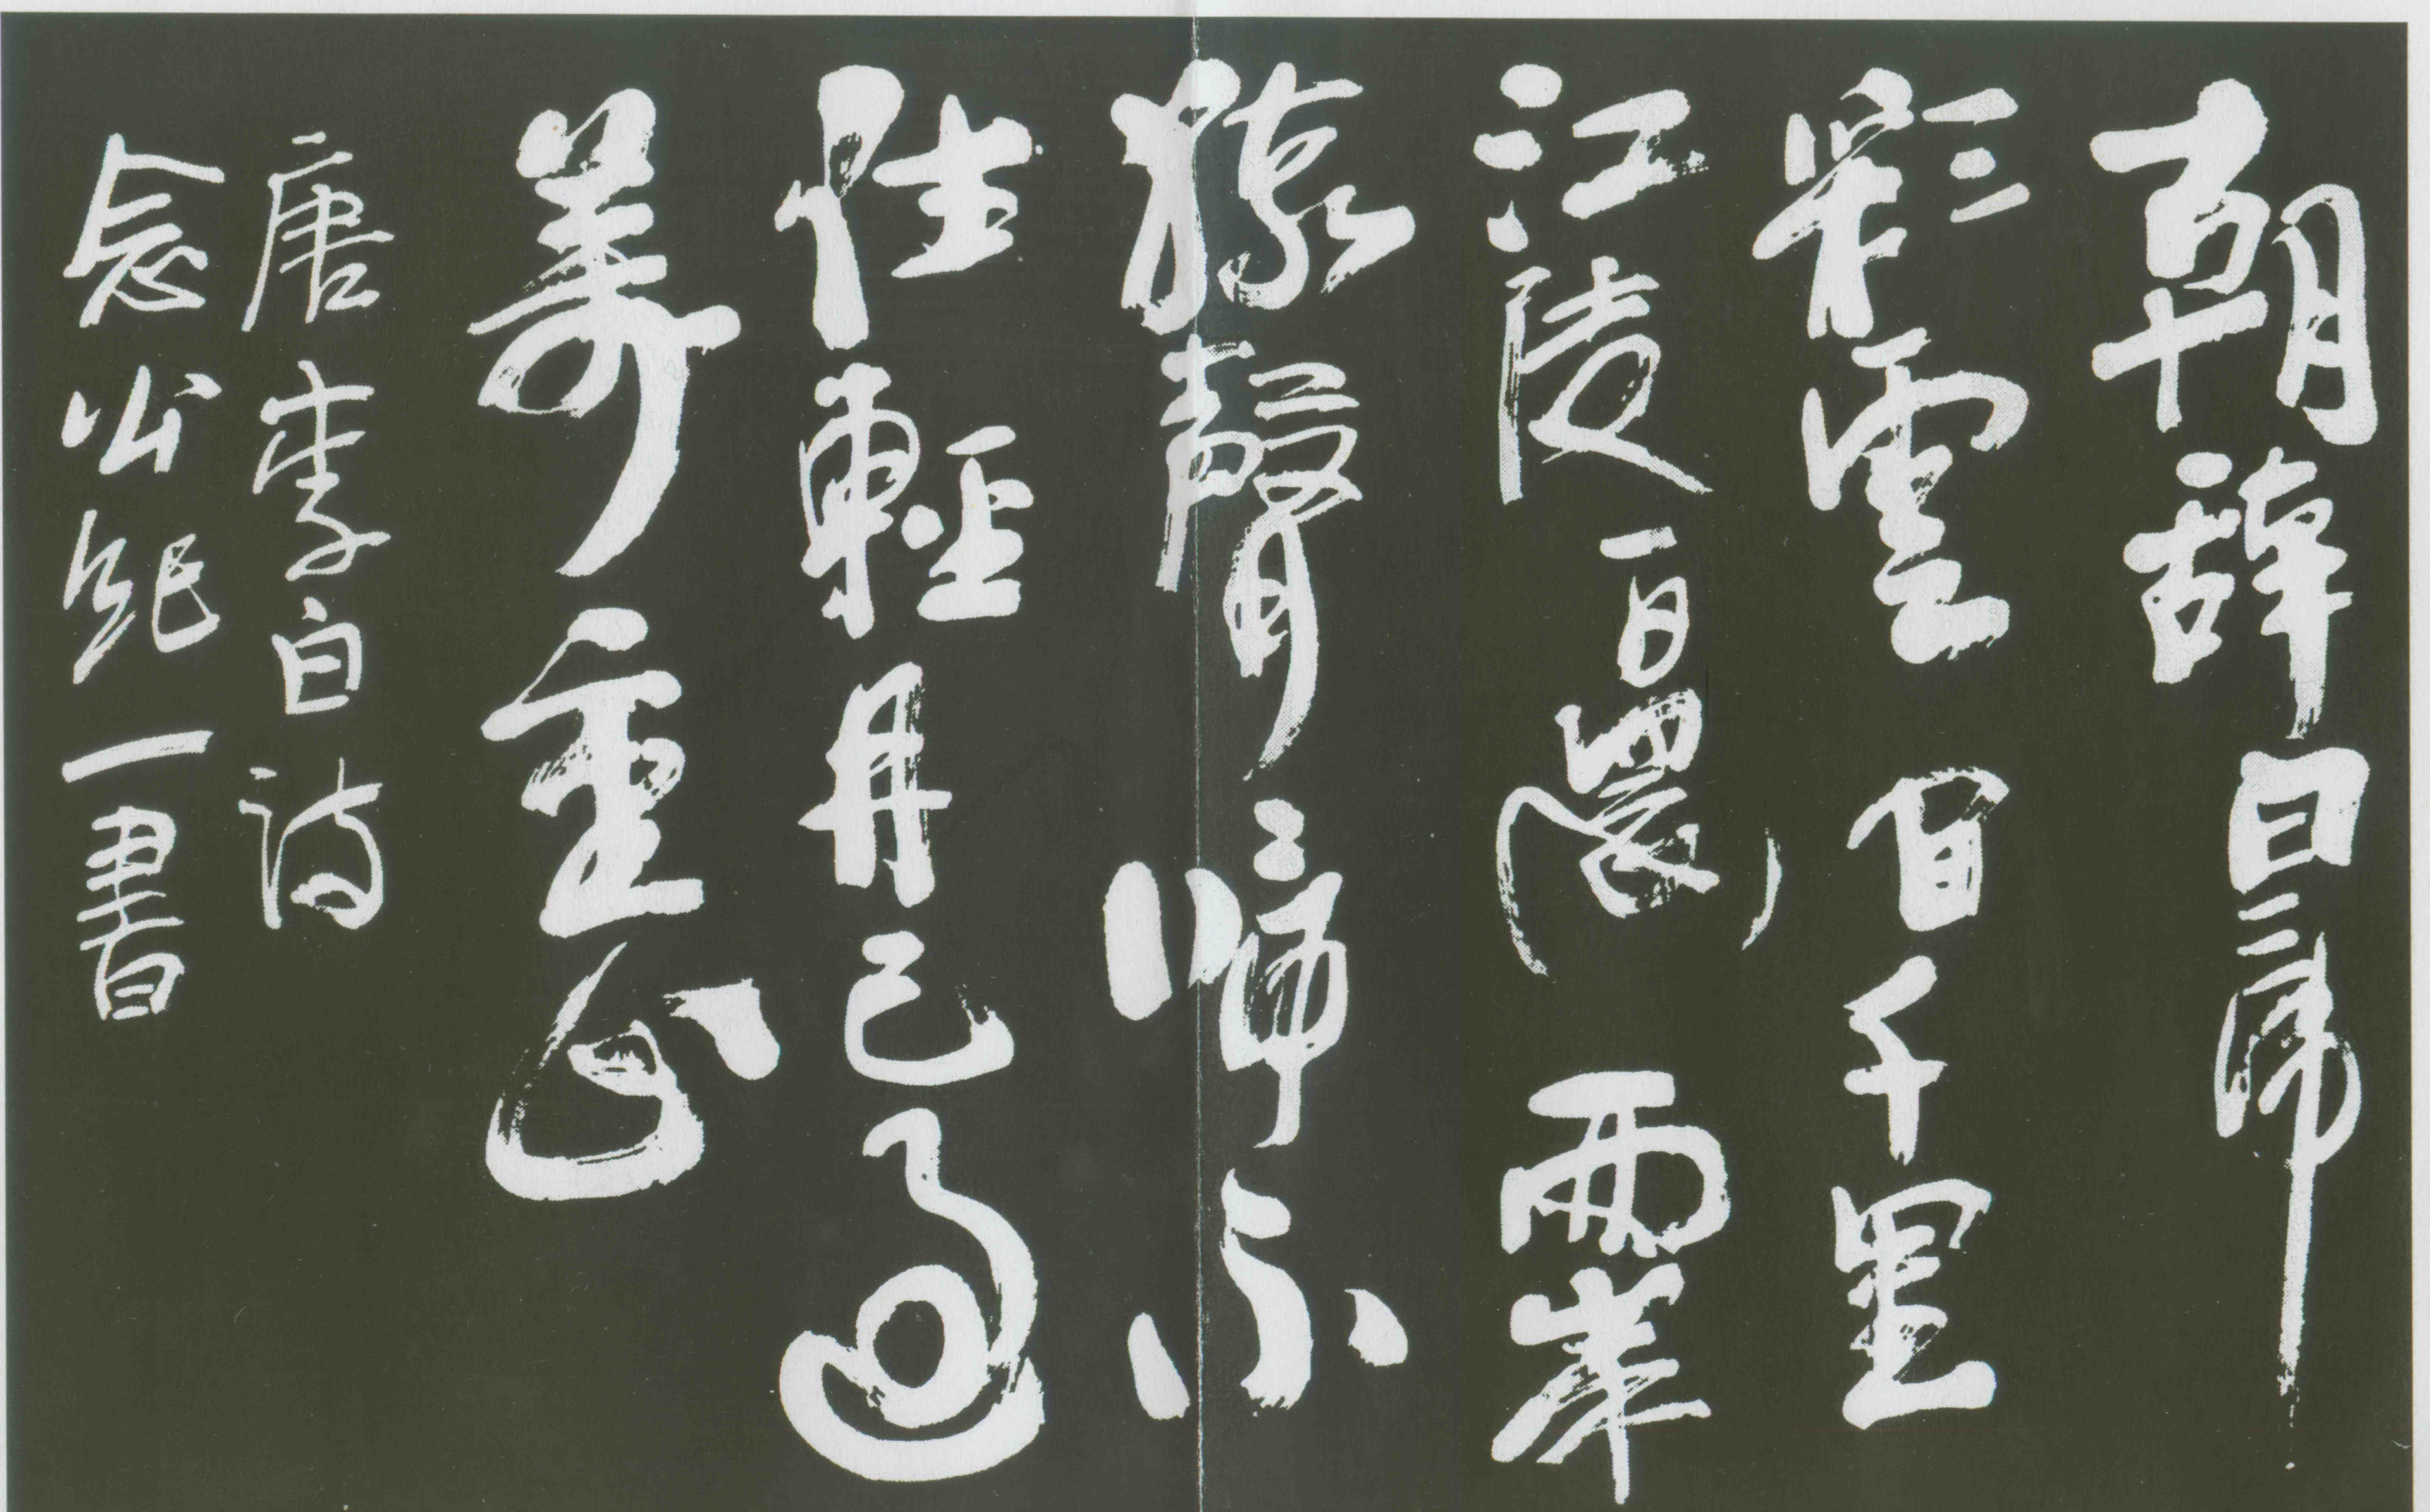 朝辭白帝
彩雲間千里
江陵一日還兩岸
猿聲啼不
住輕舟已過
萬重山
唐李白詩
念一書